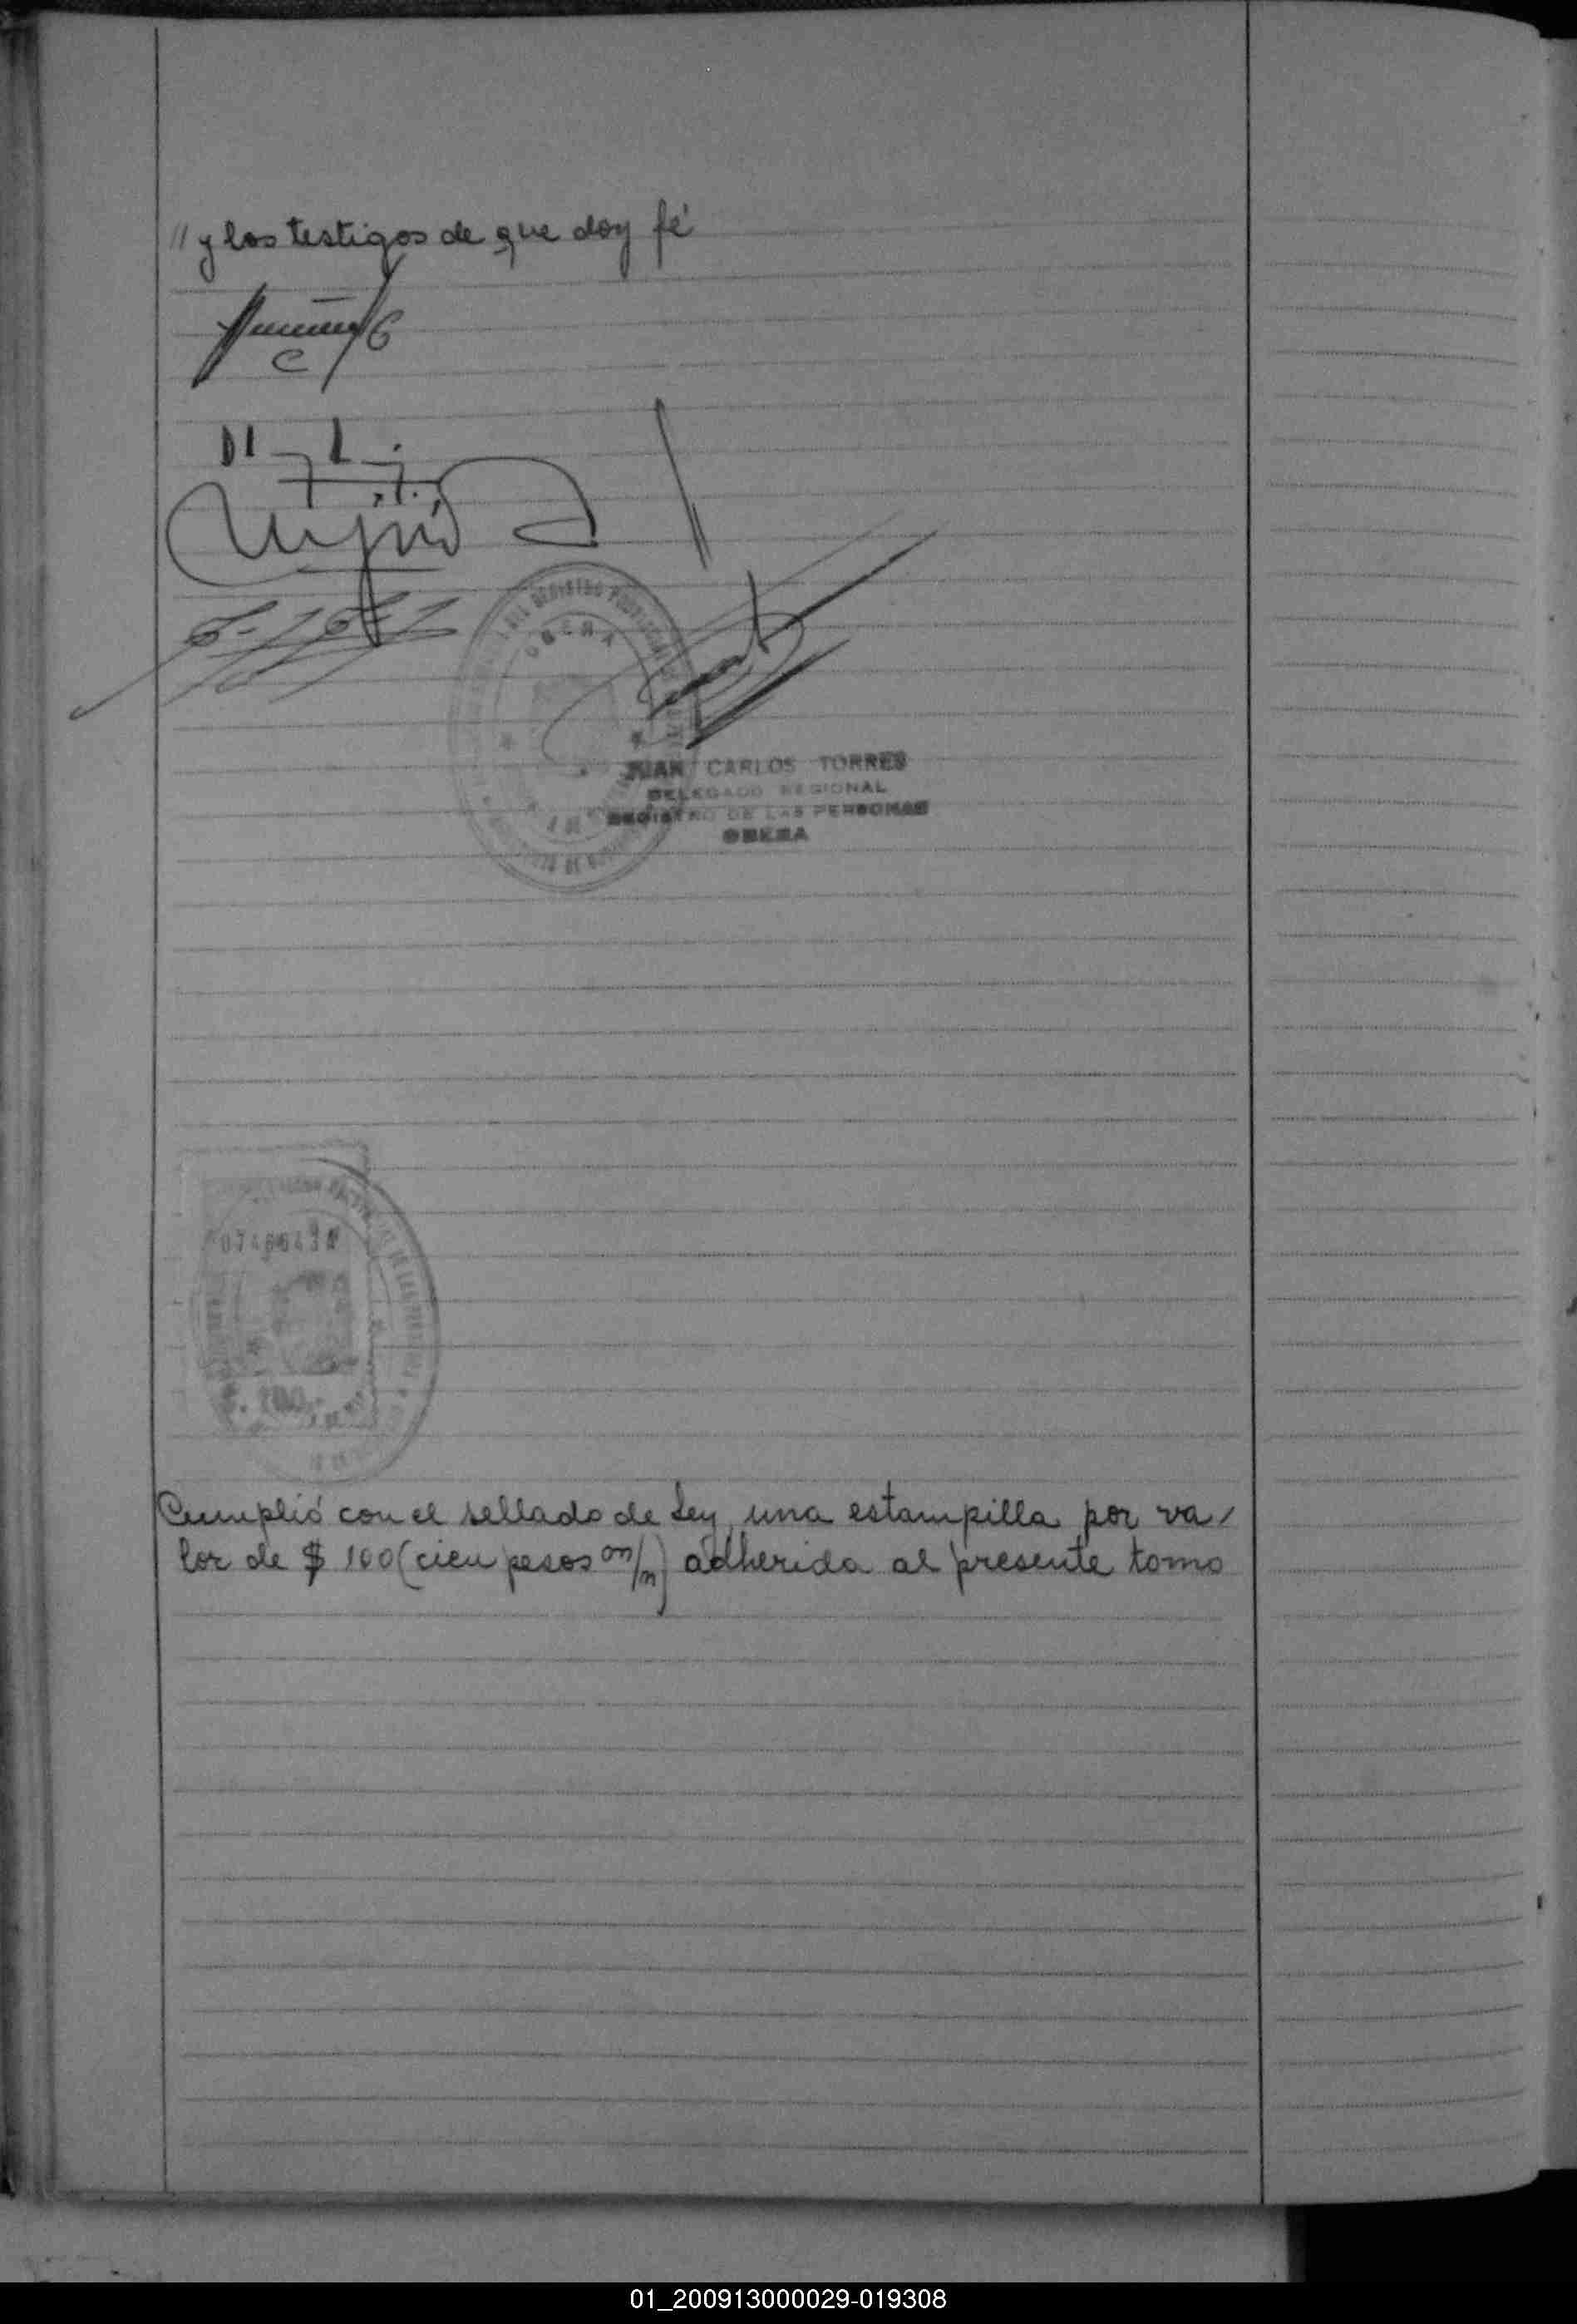 // y los testigos de que doy fé
OBERA
JUAN CARLOS TORRES
DELEGADO REGIONAL
REGISTRO DE LAS PERSONAS
OBERA
100
Cumplió con el sellado de Ley, una estampilla por va/
lor de $ 100 (cien pesos m/n) adherida al presente tomo
01_200913000029-019308